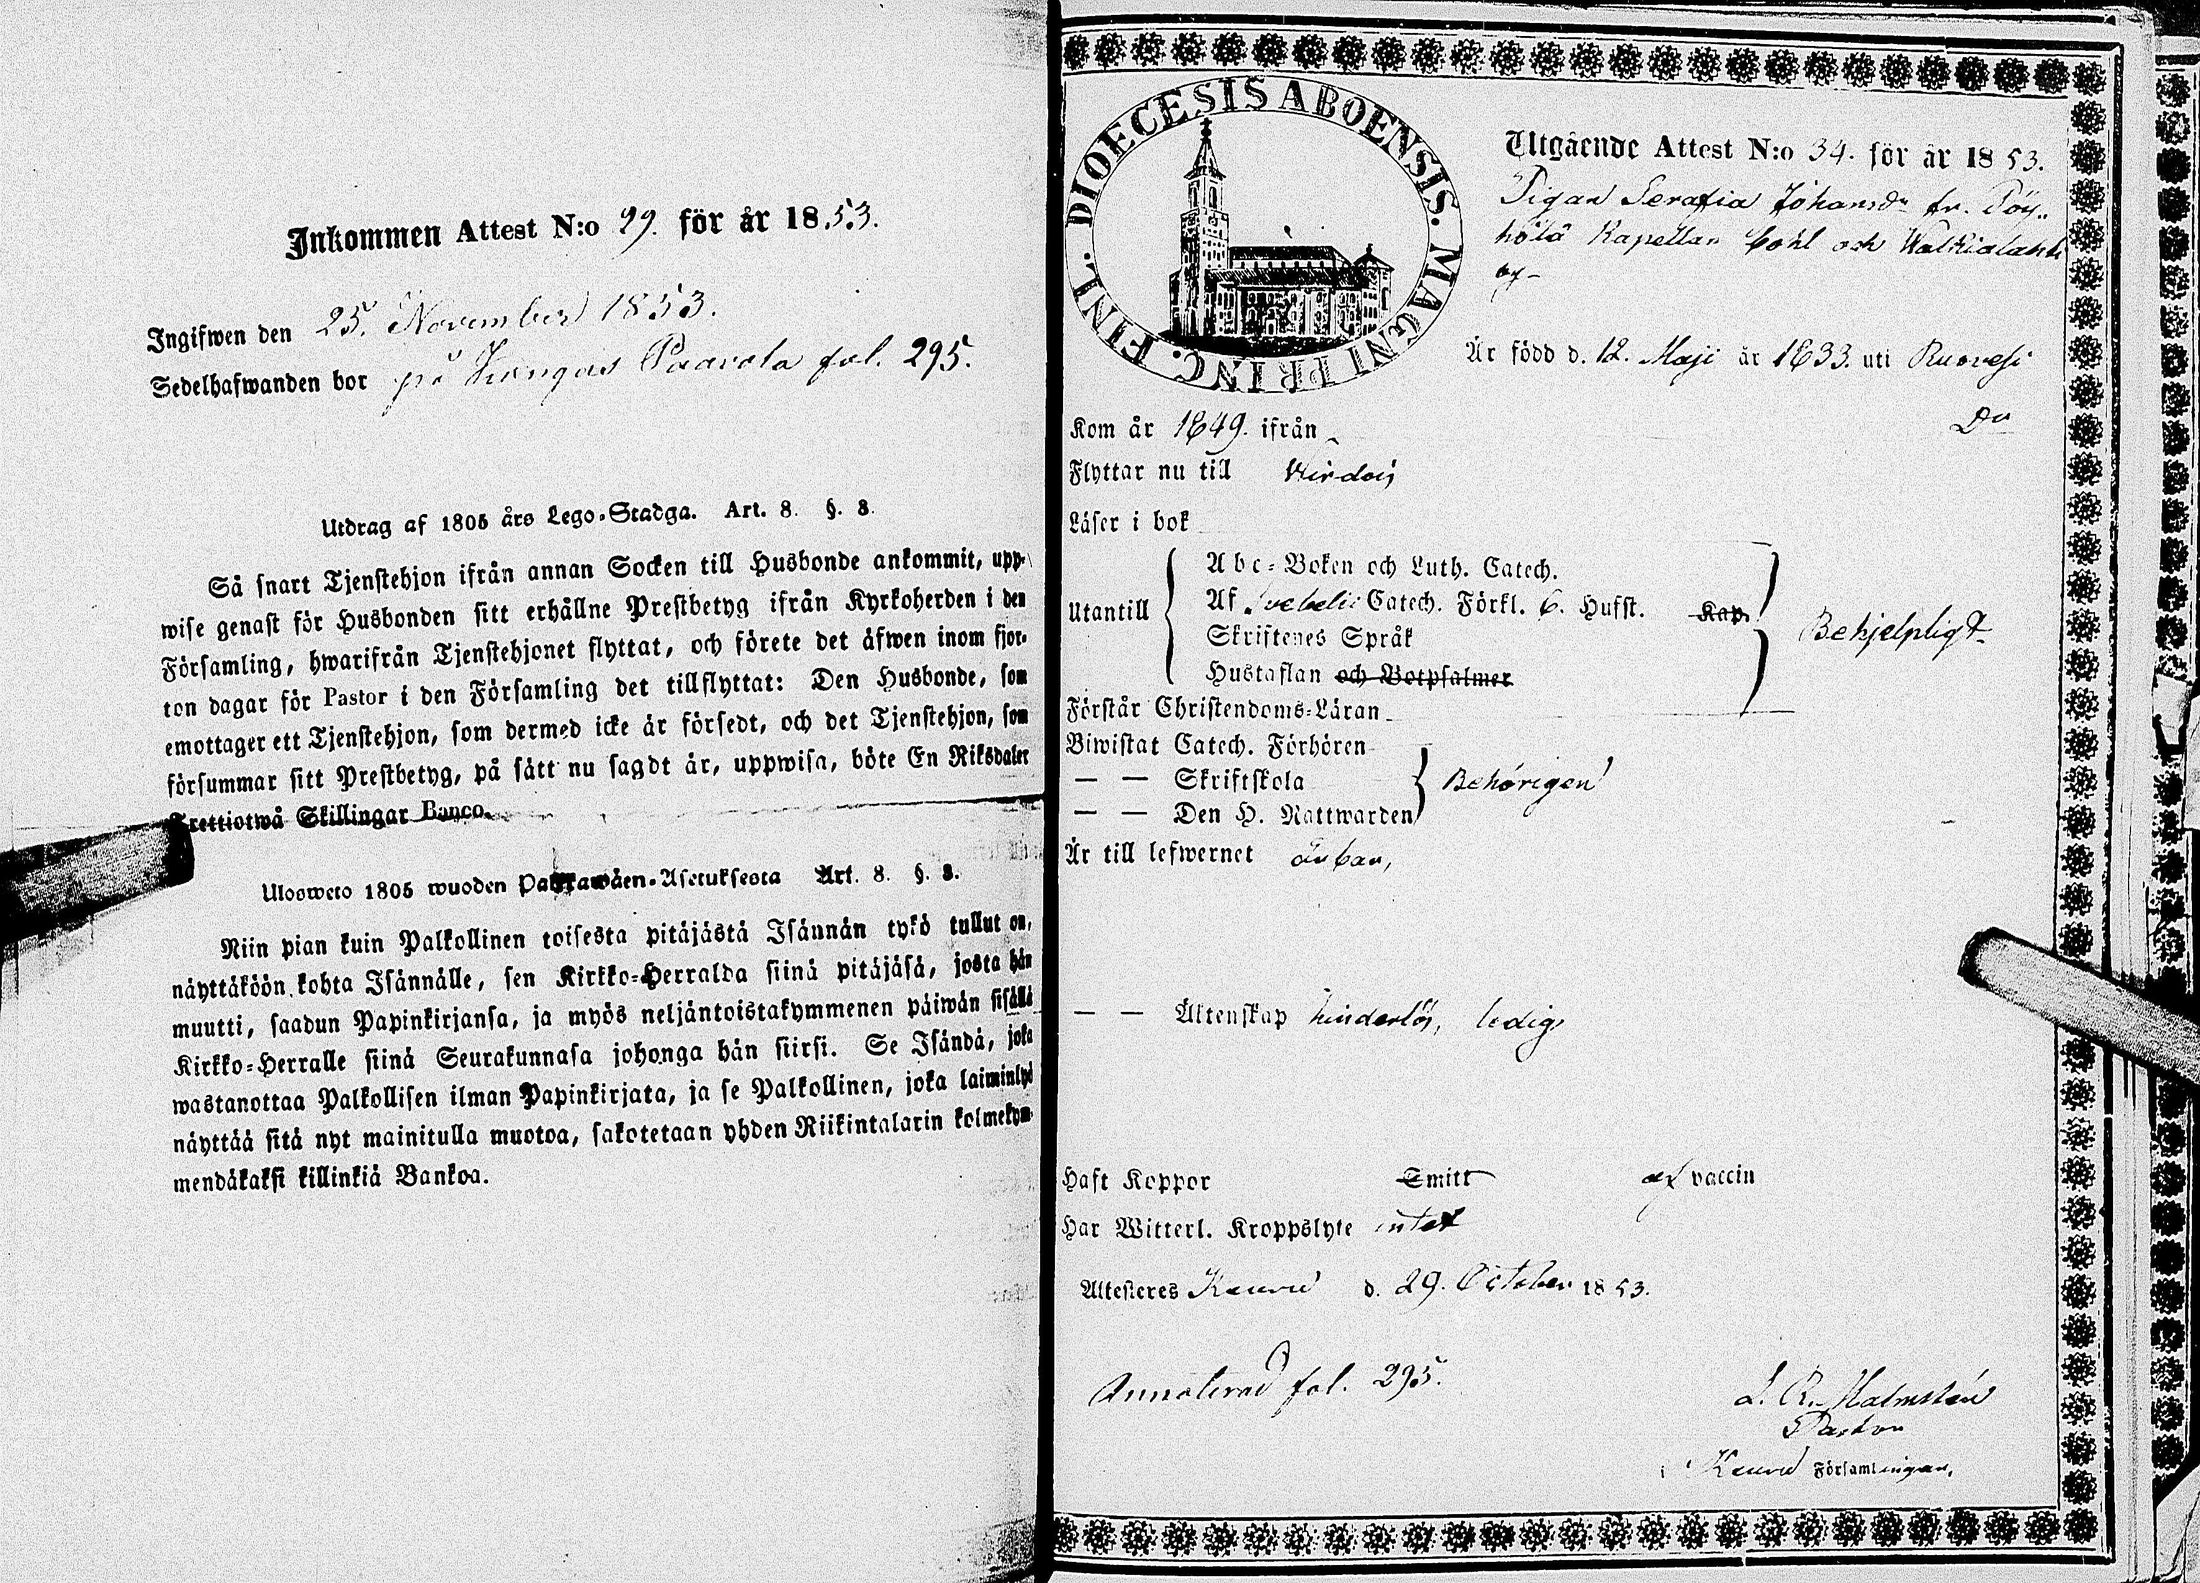 Inkommen Attest N:o 99. för år 1853.
Ingifwen den 25. November 1853.
Sedelhafwanden bor på Kangas Paavola fol. 295.
Utdrag af 1805 års Lego-Stadga. Art. 8. §. 8.
Så snart Tjenstehjon ifrån annan Socken till Husbonde ankommit, upp-
wise genast för Husbonden sitt erhållne Prestbetyg ifrån Kyrkoherden i den
Församling, hwarifrån Tjenstehjonet flyttat, och förete det äfwen inom fjor-
ton dagar för Pastor i den Församling det tillflyttat: Den Husbonde, som
emottager ett Tjenstehjon, som dermed icke är försedt, och det Tjenstehjon, som
försummar sitt Prestbetyg, på sätt nu sagdt är, uppwisa, böte En Riksdaler
Trettiotwå Skillingar Banco.
Ulosweto 1805 wuoden Palkawäen-Asetuksesta Art. 8. §. 8.
Niin pian kuin Palkollinen toisesta pitäjästä Isännän tykö tullut on,
näyttäköön kohta Isännälle, sen Kirkko-Herralda siinä pitäjäsä, josta hän
muutti, saadun Papinkirjansa, ja myös neljäntoistakymmenen päiwän sisällä
Kirkko-Herralle siinä Seurakunnasa johonga hän siirsi. Se Isändä, joka
wastanottaa Palkollisen ilman Papinkirjata, ja se Palkollinen, joka laiminlyö
näyttää sitä nyt mainitulla muotoa, sakotetaan yhden Riikintalarin kolmekym-
mendäkaksi killinkiä Bankoa.
DIOECESIS ABOENSIS. MAGNI PRINC. FINL.
Utgående Attest N:o 34. för år 1853.
Pigan Serafia Johansdr fr. Pöy-
hölä Kapellans bohl och
by
Är född d. 12. Maji år 1833. uti Ruovesi
Kom år 1849. ifrån Do
Flyttar nu till Virdois
Läser i bok
Abc-Boken och Luth. Catech.
Utantill Af Svebelii Catech. Förkl. 6. Hufst. Kap. Behjelpligt
Skriftenes Språk
Hustaflan och Botpsalmer
Förstår Christendoms-Läran
Biwistat Catech. Förhören
— — Skriftskola Behörigen
— — Den H. Nattwarden
Är till lefwernet ärbar,
— — Äktenskap hinderlös, ledig
Haft Koppor Smitt af vaccin
Har Witterl. Kroppslyte intet
Attesteres Keuru d. 29. October 1853.
Annoterad fol. 295.
J. R. Malmstén
Pastor
i Keuru Församlingar.